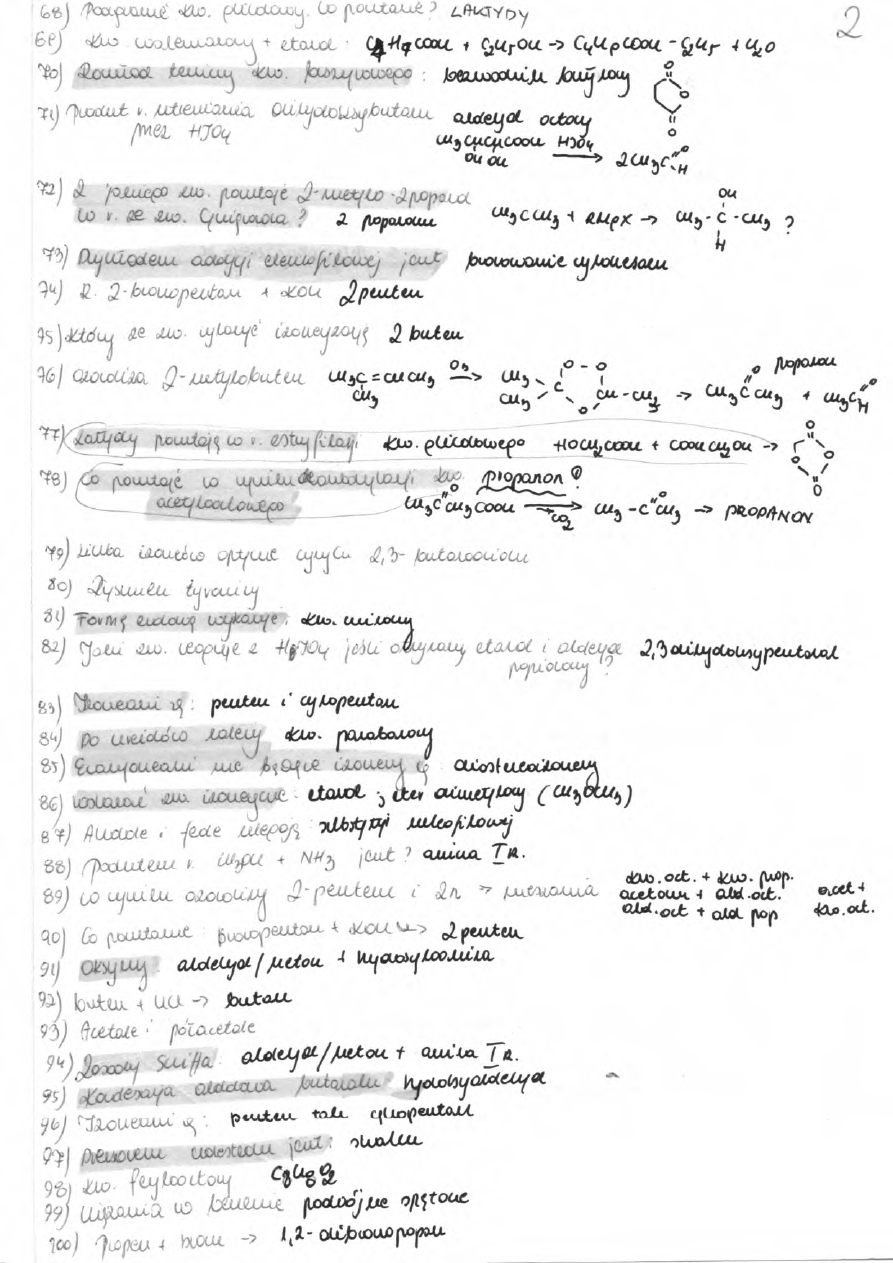 2
68) Podgrzanie kw. glikolowy. Co powstanie? LAKTYDY
69) kw. walerianowy + etanol : C4H9COOH + C2H5OH → C4H9COOH - C2H5 + H2O
70) Rozkład termiczny kw. bursztynowego : bezwodnik bursztynowy
71) Produkt r. utleniania dihydroksybutanu przez HJO4 aldehyd octowy
CH3CHCHCOOH HJO4 → 2CH3C=O-H
OH OH
72) Z jakiego zw. powstaje 2-metylo-2 propanol
w r. ze zw. Grignarda? 2 propanonu CH3CCH3 + RMgX → CH3-C-CH3 ?
OH
H
73) Przykładem addycji elektrofilowej jest bromowanie cykloheksanu
74) R. 2-bromopentan + KOH 2 penten
75) Który ze zw. wykazuje izomeryzację 2 buten
76) Ozonoliza 2-metylobuten CH3C=CHCH3 O3 → CH3 CH3 C O-O O CH-CH3 → CH3CCH3 + CH3C H
CH3
propanon
77) Laktydy powstają w r. estryfikacji kw. glikolowego HOCH2COOH + COOHCH2OH →
78) Co powstaje w wyniku dekarboksylacji kw. acetylooctowego propanon?
CH3C=OCH2COOH → -CO2 CH3-C=OCH3 → PROPANON
79) Liczba izomerów optycznie czynnych 2,3-butanodiolu
80) Rysunek tyrozyny
81) Formę enolową wykazuje: kw.
82) Jaki zw. reaguje z HJO4 jeśli otrzymamy etanol i aldehyd propionowy? 2,3 dihydroksypentanal
83) Izomerami są: penten i cyklopentan
84) Do ureidów należy kw. parabanowy
85) Enancjomerami nie będące izomery są diastereoizomery
86) Wskazać zw. izomeryczne: etanol ; eter dimetylowy (CH3OCH3)
87) Alkohole i fenole ulegają substytucji nukleofilowej
88) Produktem r. CH3OH + NH3 jest? amina I rz.
89) W wyniku ozonolizy 2-pentenu i Zn → mieszanina kw. oct. + kw. prop.
aceton + ald. oct. acet + kw. oct.
ald. oct + ald prop
90) Co powstanie: bromopentan + KOH → 2 penten
91) Oksymy: aldehyd/keton + hydroksyloamina
92) buten + HCl → butan
93) Acetale i półacetale
94) Zasady Schiffa: aldehyd/keton + amina I rz.
95) Kondensacja aldolowa butanalu hydroksyaldehyd
96) Izomerami są: penten cyklopentan
97) Prekursorem cholesterolu jest: skwalen
98) kw. fenylooctowy C8H8O2
99) Wiązania w benzenie podwójne sprzężone
100) Propen + brom → 1,2-dibromopropan